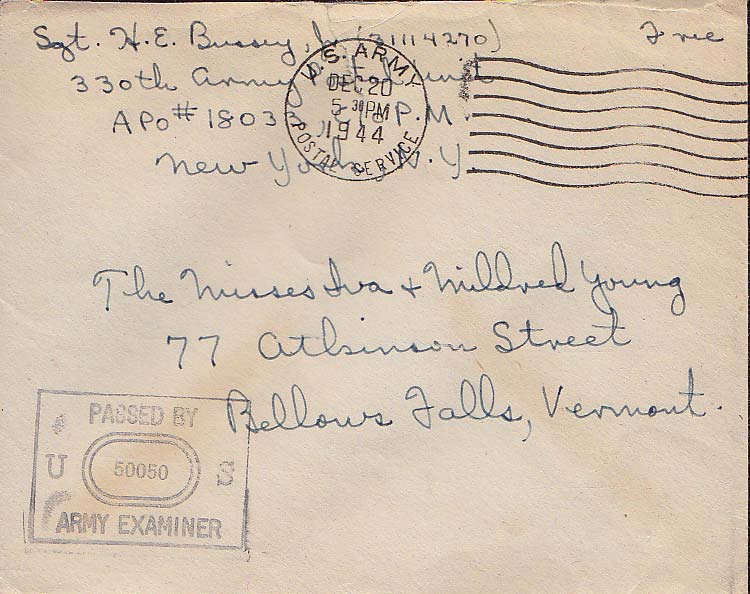 Sgt. H.E. Bussey, Jr (31114270)
Free
330th Army Postal Unit
APO# 18033 c/o P.M.
New York, N.Y.
U.S. ARMY
DEC 20
5 30 PM
1944
POSTAL SERVICE
The Misses Iva + Mildred Young
77 Atkinson Street
Bellows Falls, Vermont.
PASSED BY
U 50050 S
ARMY EXAMINER